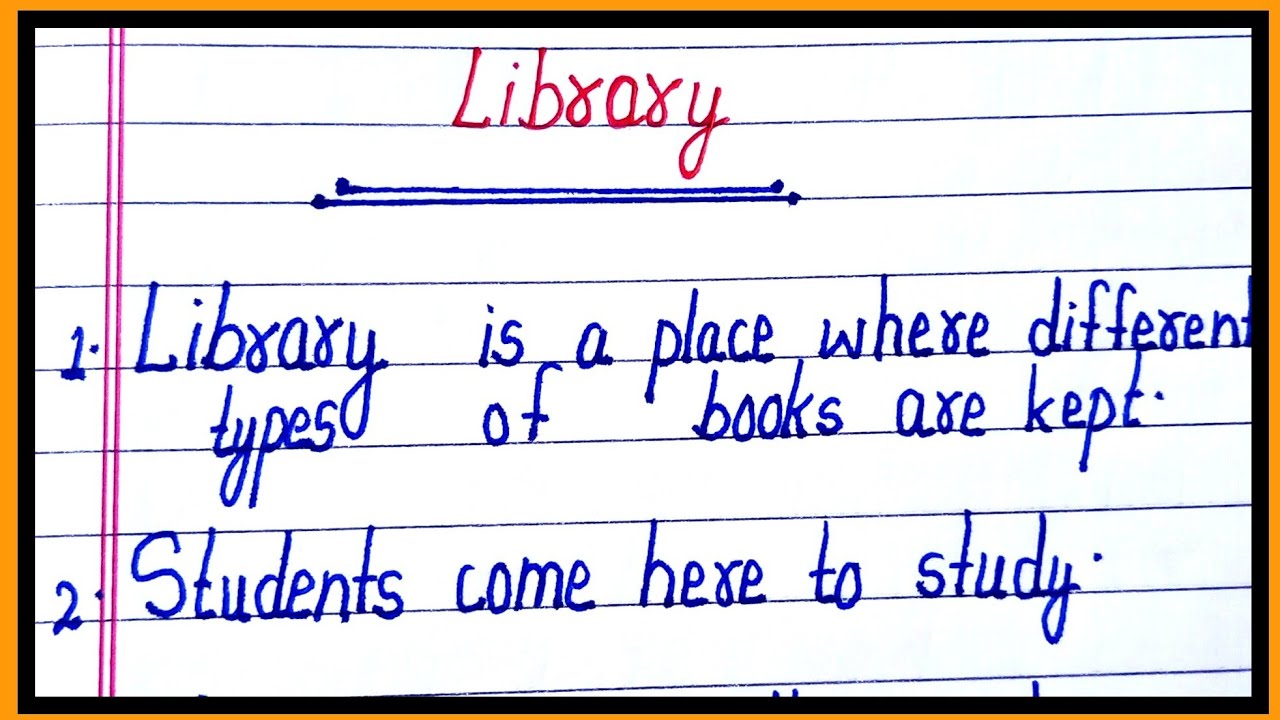 Library
1. Library is a place where different
types of books are kept.
2. Students come here to study.